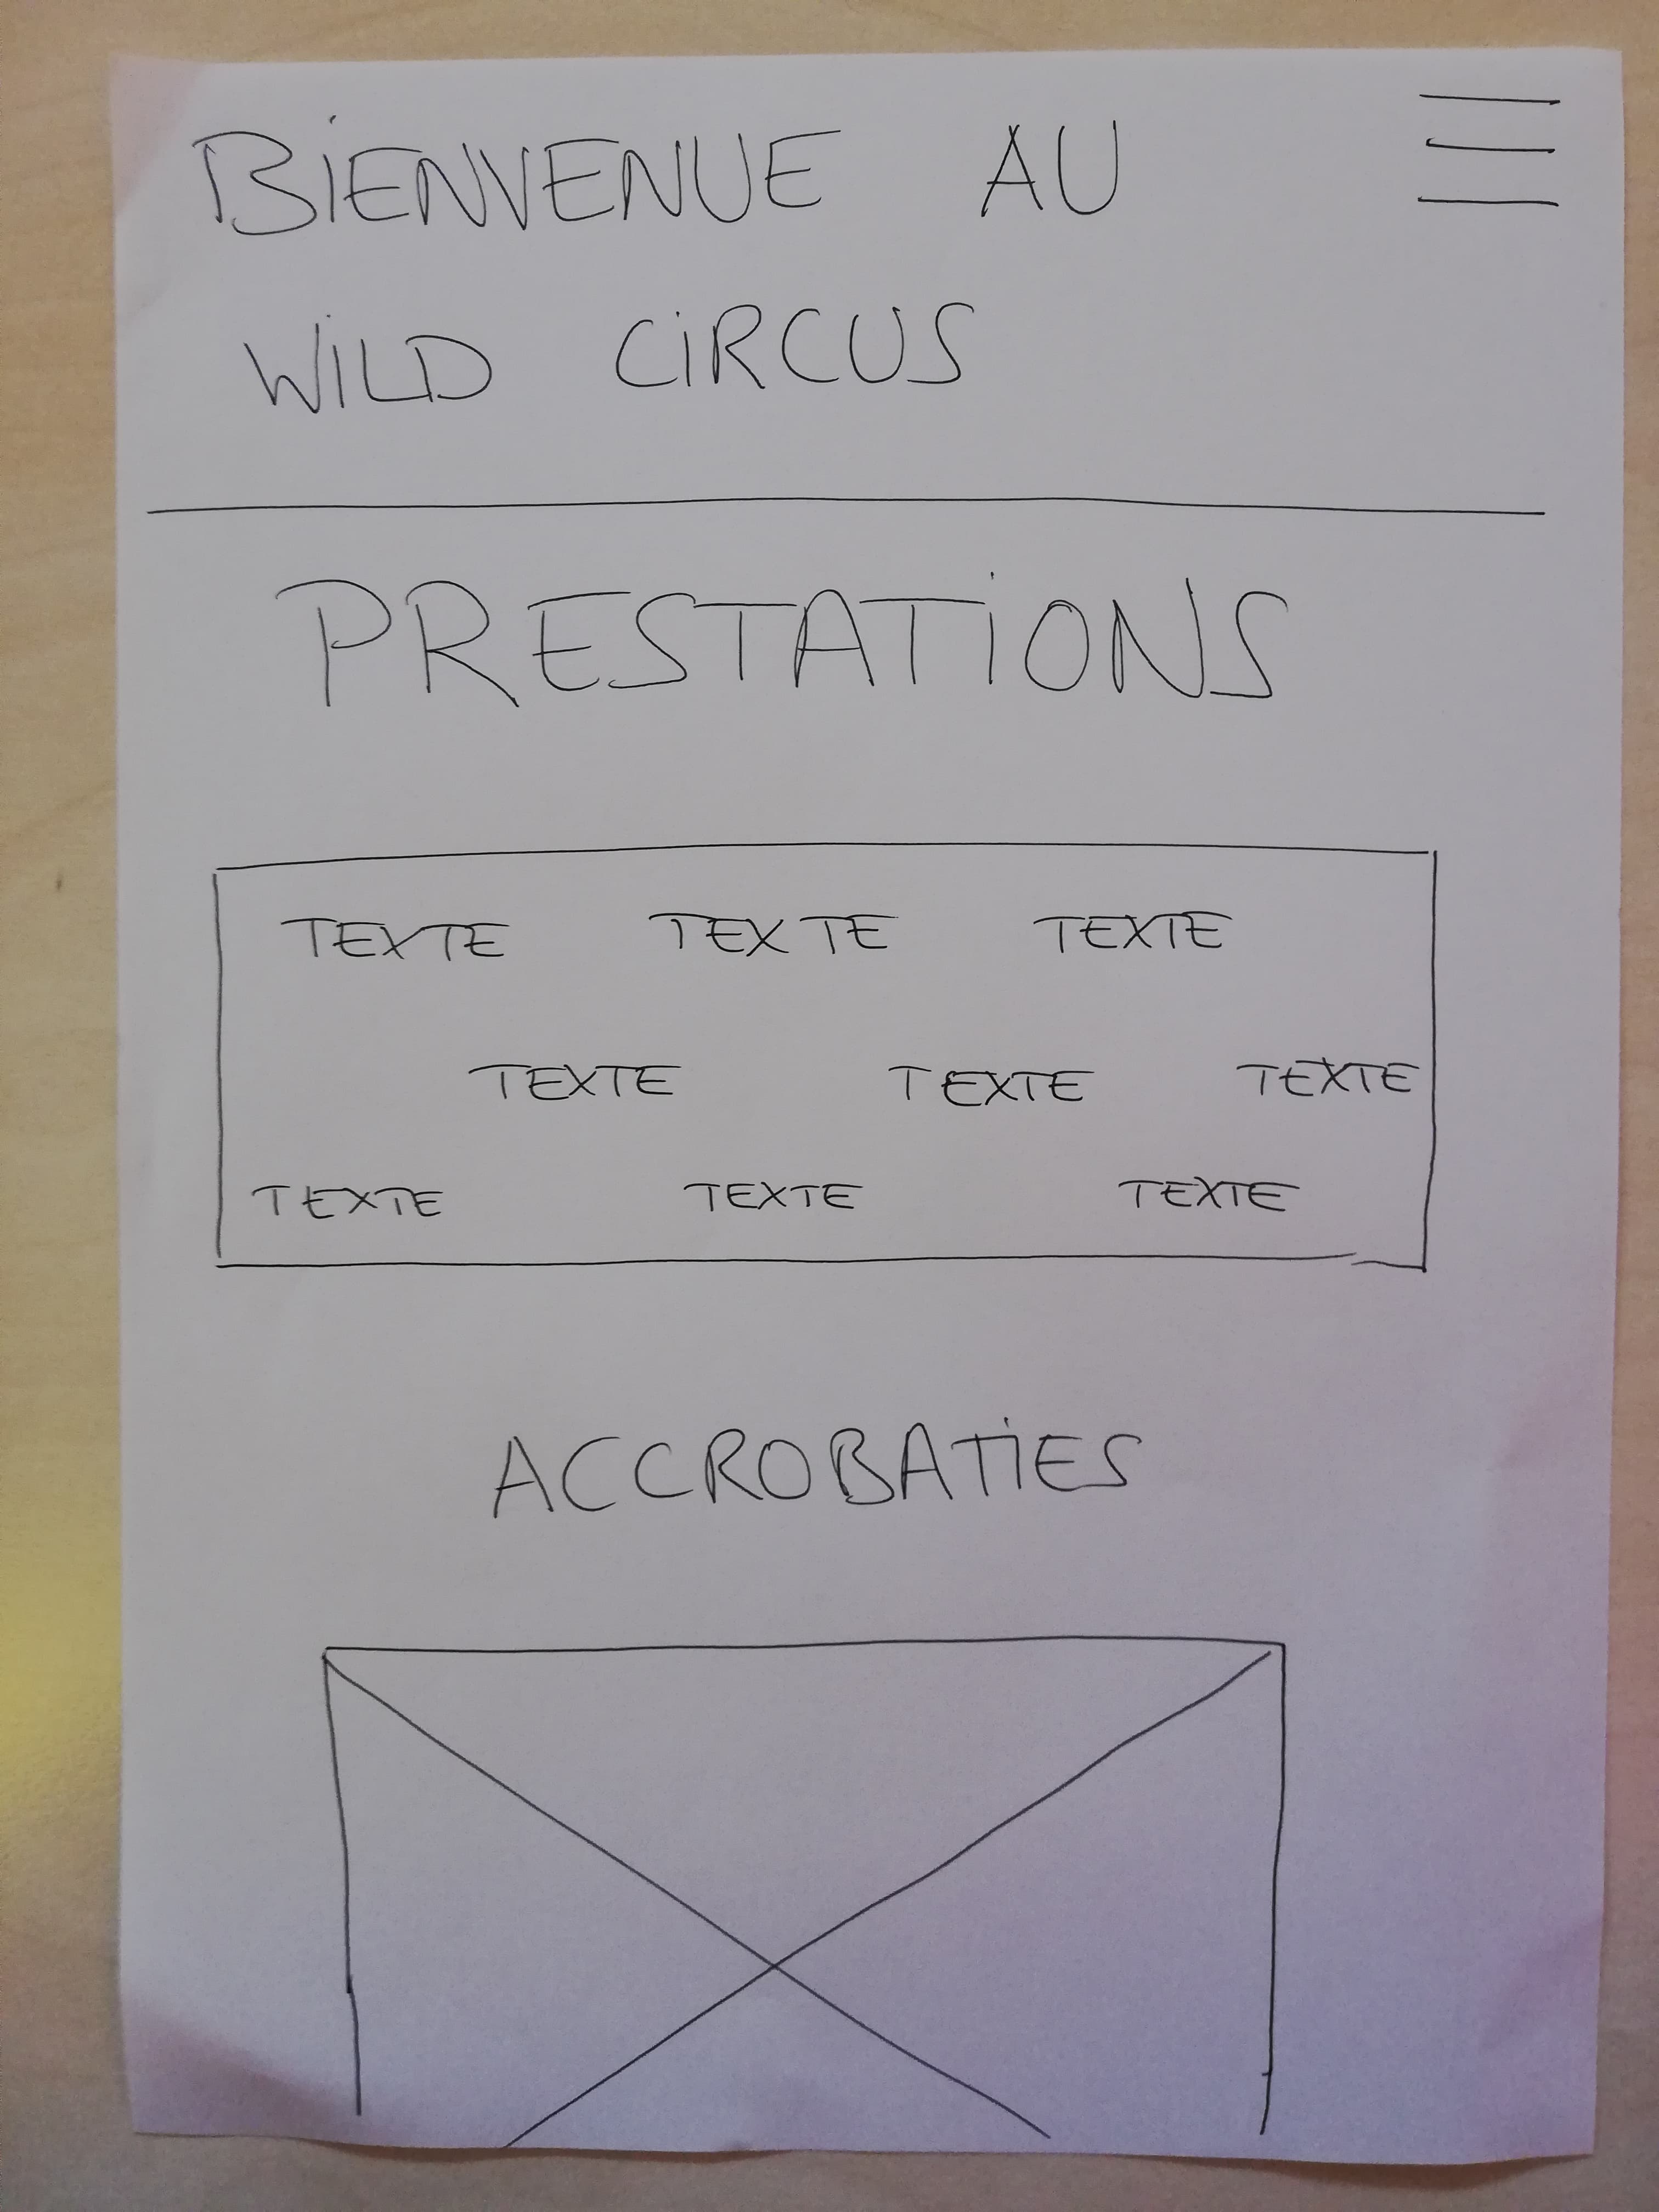 BIENVENUE AU
WILD CIRCUS
PRESTATIONS
TEXTE TEXTE TEXTE
TEXTE TEXTE TEXTE
TEXTE TEXTE TEXTE
ACCROBATIES